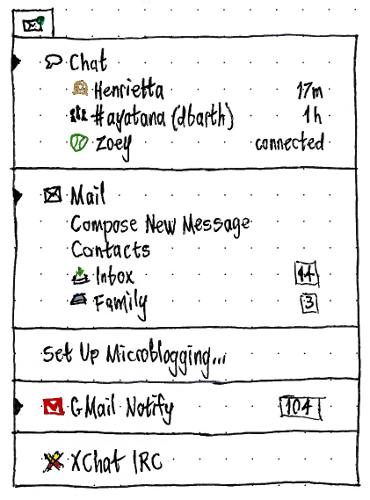 Chat
Henrietta 17m
#ayatana (dbarth) 1h
Zoey connected
Mail
Compose New Message
Contacts
Inbox 14
Family 3
Set Up Microblogging...
GMail Notify 104
XChat IRC